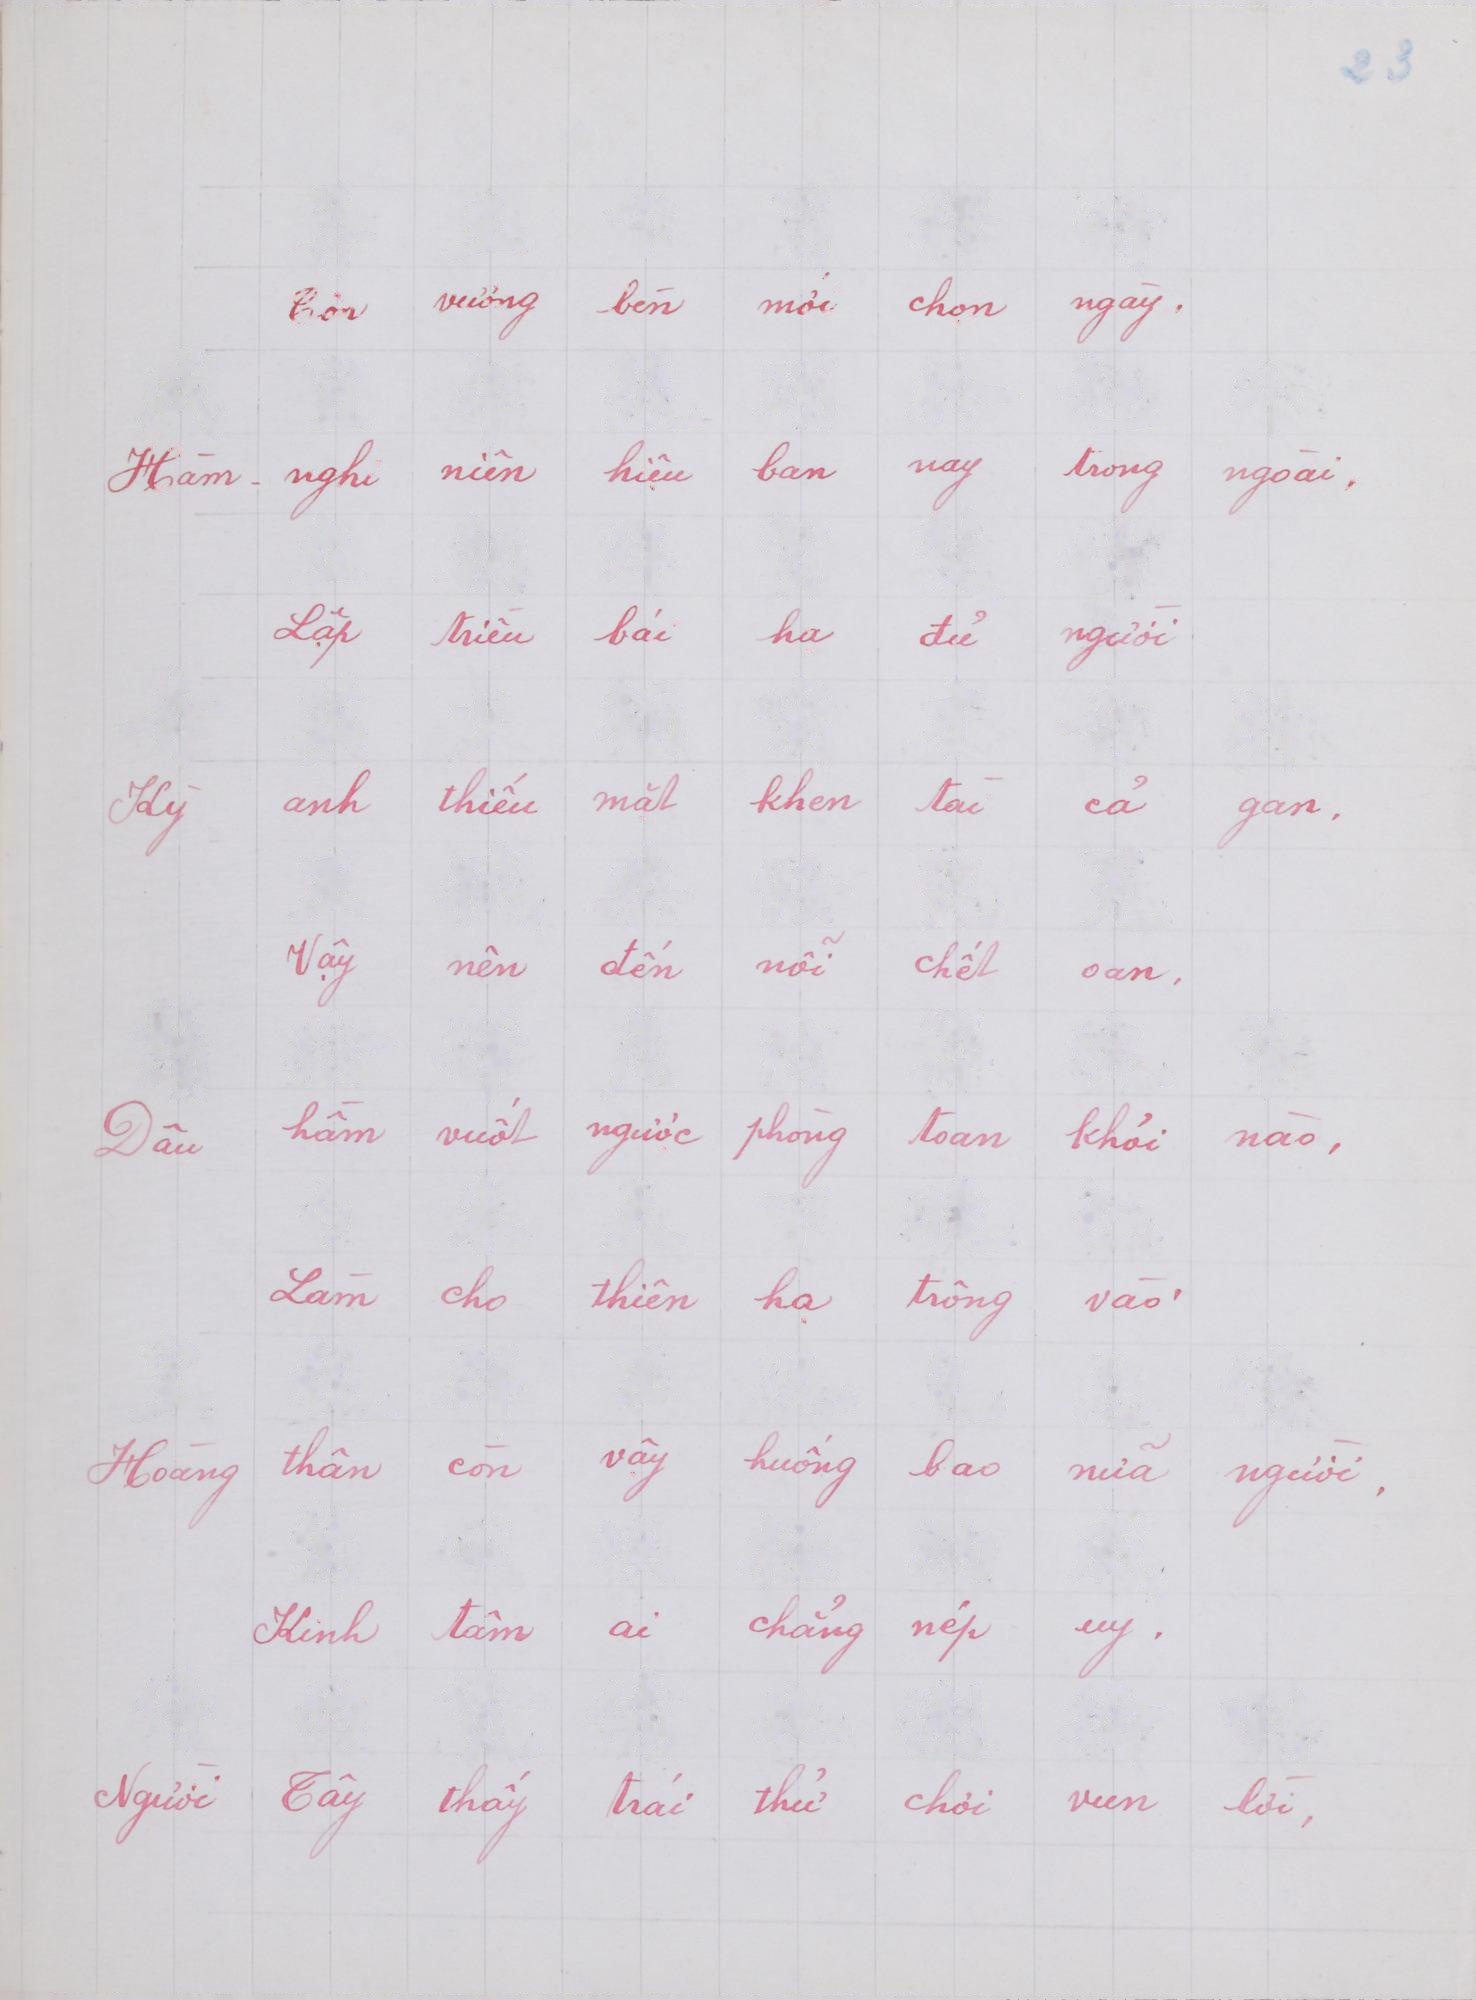 23
Tôn vương bèn mới chọn ngày.
Hàm-nghi niên hiệu ban nay trong ngoài,
Lập triều bái hạ đủ người
Kỳ anh thiếu mặt khen tài cả gan.
Vậy nên đến nỗi chết oan.
Dầu hầm vuốt ngược phòng toan khỏi nào,
Làm cho thiên hạ trông vào
Hoàng thân còn vậy huống bao nữa người,
Kinh tâm ai chẳng nép uy.
Người Tây thấy trái thử chơi vun lời,